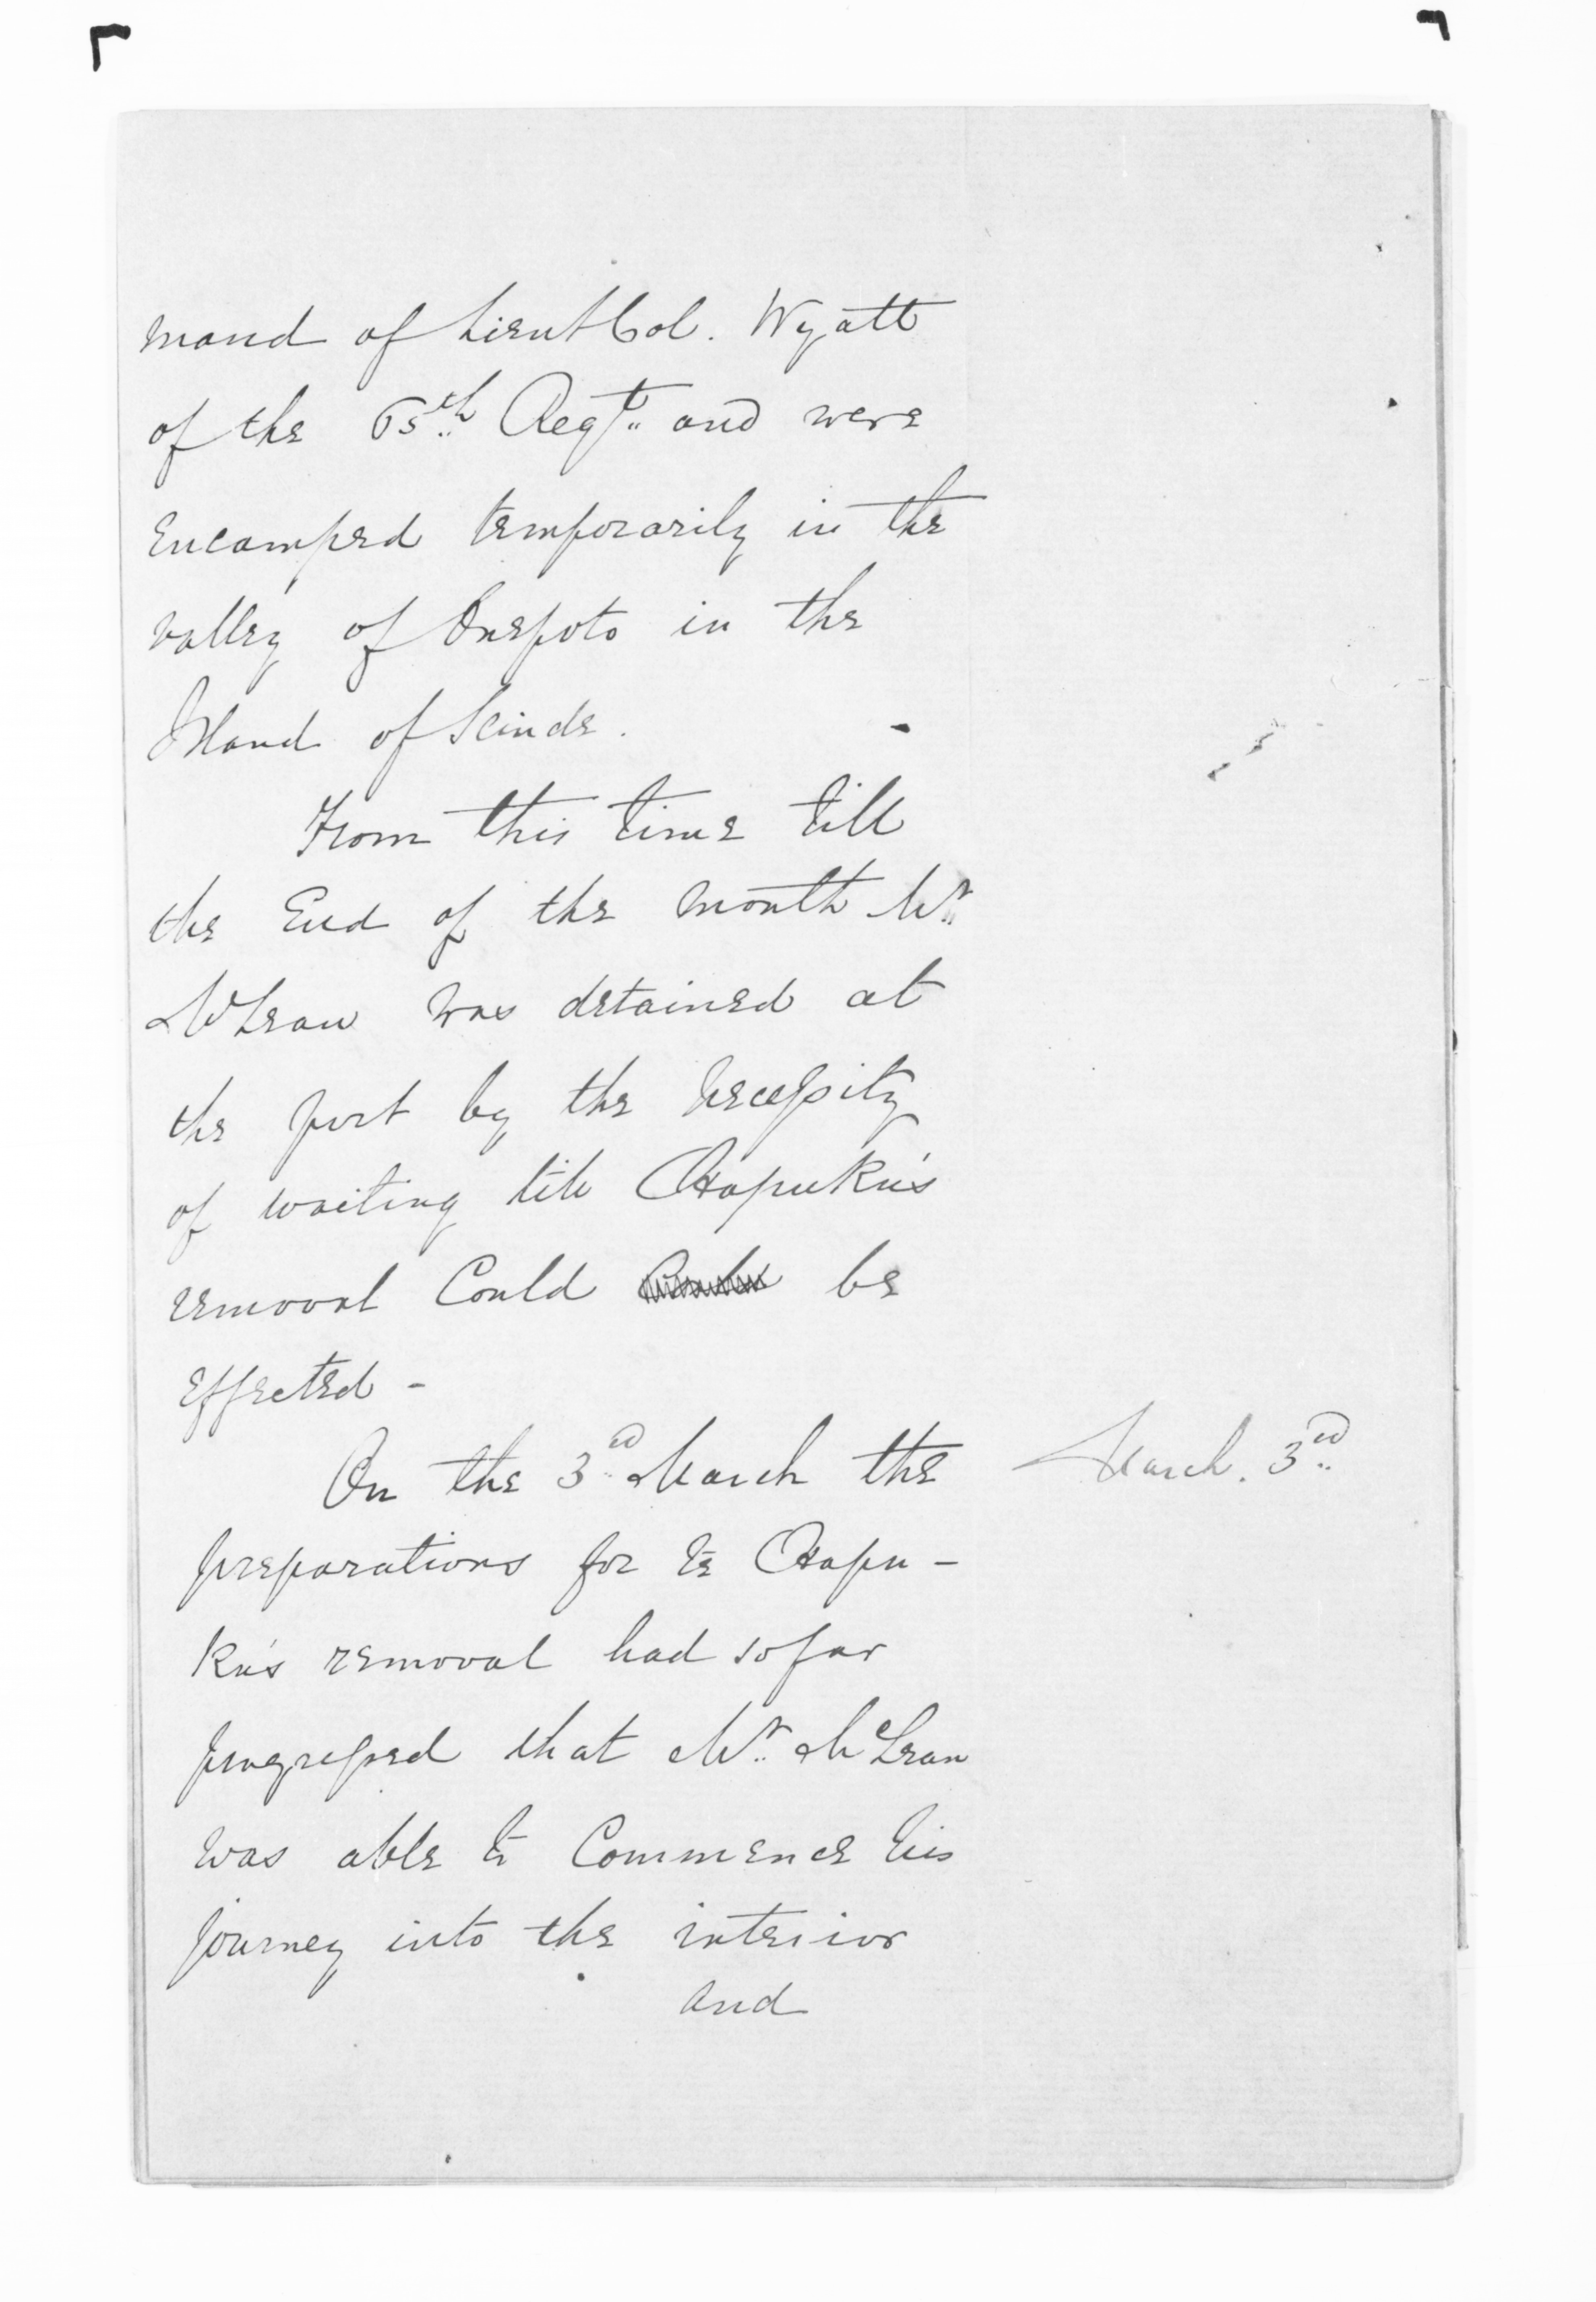 mand of Lieut Col. Wyatt
of the 65th Regt and were
Encamped temporarily in the
valley of Onepoto in the
Island of Scinde.
From this time till
the End of the month Mr
McLean was detained at
the port by the necessity
of waiting till Hapuku's
removal Could be
effected -
On the 3rd March the
March. 3rd
preparations for Te Hapu-
ku's removal had so far
progressed that Mr McLean
was able to Commence his
journey into the interior
and